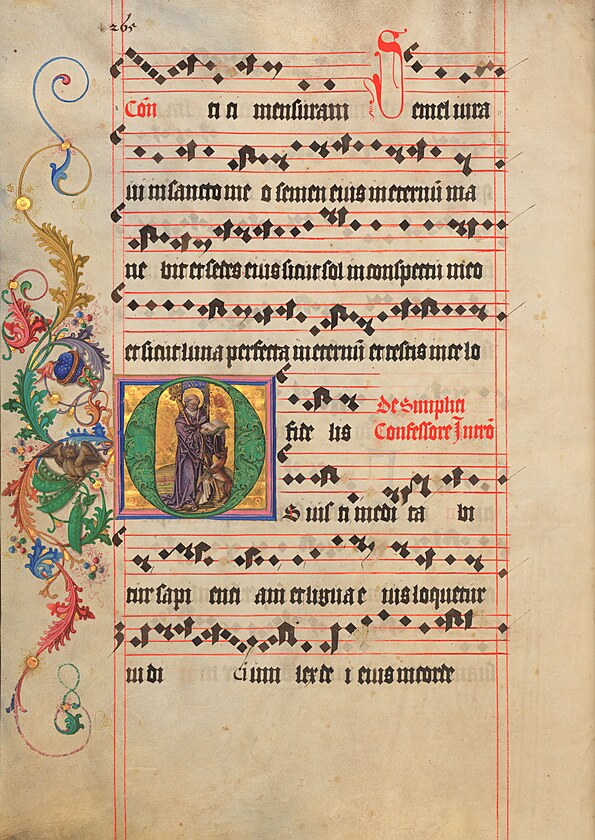 265
Con ci ci mensuram Semel iura
ui in sancto me o semen eius in eternū ma
ne bit et sedes eius sicut sol in conspectu meo
et sicut luna perfecta in eternū et testis in ce lo
fide lis De Simplici
Confessore Introͦ
Os iusti medi ta bi
tur sapi enci am et lingua e ius loquetur
iu di cium lex de i eius in corde